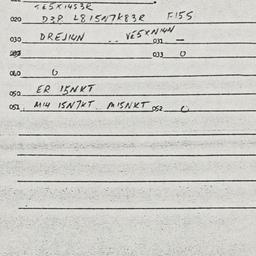 020 D3R L815N7K83R F155
030 DREJ14N -- VE5XN14N
031 —
033 0
040 0
050 ER 15NKT
051 M14 15N7KT M15NKT 052 0